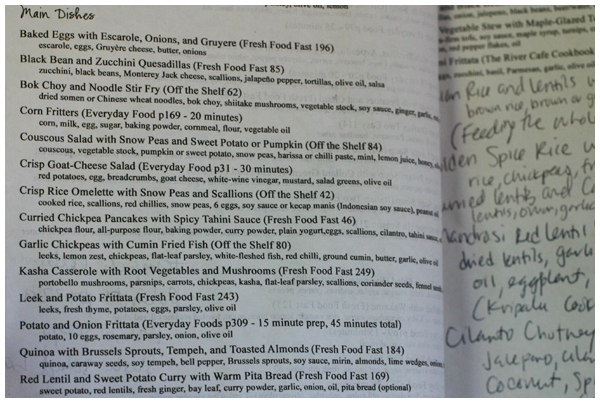 Main Dishes
Baked Eggs with Escarole, Onions, and Gruyere (Fresh Food Fast 196)
escarole, eggs, Gruyère cheese, butter, onions
Black Bean and Zucchini Quesadillas (Fresh Food Fast 85)
zucchini, black beans, Monterey Jack cheese, scallions, jalapeño pepper, tortillas, olive oil, salsa
Bok Choy and Noodle Stir Fry (Off the Shelf 62)
dried somen or Chinese wheat noodles, bok choy, shiitake mushrooms, vegetable stock, soy sauce, ginger, garlic,
Corn Fritters (Everyday Food p169 - 20 minutes)
corn, milk, egg, sugar, baking powder, cornmeal, flour, vegetable oil
Couscous Salad with Snow Peas and Sweet Potato or Pumpkin (Off the Shelf 84)
couscous, vegetable stock, pumpkin or sweet potato, snow peas, harissa or chilli paste, mint, lemon juice, honey,
Crisp Goat-Cheese Salad (Everyday Food p31 - 30 minutes)
red potatoes, egg, breadcrumbs, goat cheese, white-wine vinegar, mustard, salad greens, olive oil
Crisp Rice Omelette with Snow Peas and Scallions (Off the Shelf 42)
cooked rice, scallions, red chillies, snow peas, 6 eggs, soy sauce or kecap manis (Indonesian soy sauce), peanut
Curried Chickpea Pancakes with Spicy Tahini Sauce (Fresh Food Fast 46)
chickpea flour, all-purpose flour, baking powder, curry powder, plain yogurt,eggs, scallions, cilantro, tahini sauce,
Garlic Chickpeas with Cumin Fried Fish (Off the Shelf 80)
leeks, lemon zest, chickpeas, flat-leaf parsley, white-fleshed fish, red chilli, ground cumin, butter, garlic, olive oil
Kasha Casserole with Root Vegetables and Mushrooms (Fresh Food Fast 249)
portobello mushrooms, parsnips, carrots, chickpeas, kasha, flat-leaf parsley, scallions, coriander seeds, fennel
Leek and Potato Frittata (Fresh Food Fast 243)
leeks, fresh thyme, potatoes, eggs, parsley, olive oil
Potato and Onion Frittata (Everyday Foods p309 - 15 minute prep, 45 minutes total)
potato, 10 eggs, rosemary, parsley, onion, olive oil
Quinoa with Brussels Sprouts, Tempeh, and Toasted Almonds (Fresh Food Fast 184)
quinoa, caraway seeds, soy tempeh, bell pepper, Brussels sprouts, soy sauce, mirin, almonds, lime wedges, onion,
Red Lentil and Sweet Potato Curry with Warm Pita Bread (Fresh Food Fast 169)
sweet potato, red lentils, fresh ginger, bay leaf, curry powder, garlic, onion, oil, pita bread (optional)
onion, jalapeno, black beans,
Vegetable Stew with Maple-Glazed
soy sauce, maple syrup, turnips,
red pepper flakes, oil
Frittata (The River Cafe Cookbook
zucchini, basil, Parmesan, garlic, olive oil
Rice and lentils
brown rice, brown or
(Feeding the whole
Spice Rice
rice, chickpeas,
lentils and
lentils, onion, garlic
Red Lentil
dried lentils,
oil, eggplant,
(Kripalu Cook
Cilantro Chutney
Jalepeno,
Coconut,